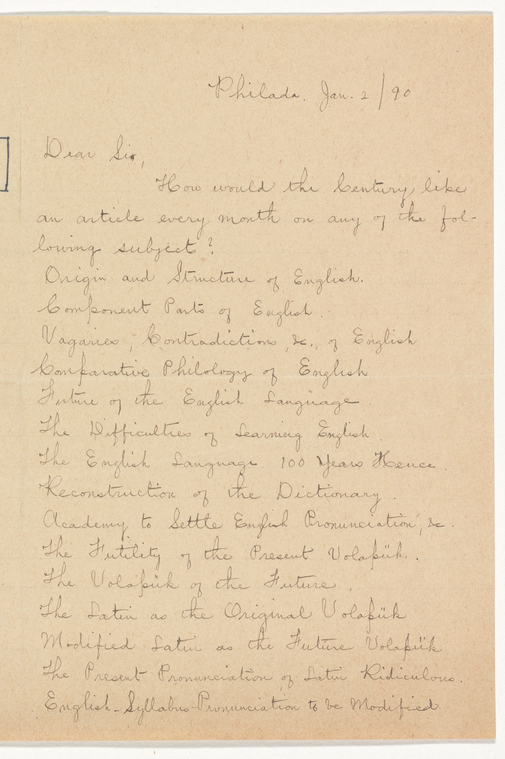 Philada. Jan. 2/90
Dear Sir,
How would the Century like
an article every month on any of the fol-
lowing subject?
Origin and Structure of English.
Component Parts of English.
Vagaries, Contradictions &c., of English
Comparative Philology of English
Future of the English Language
The Difficulties of Learning English.
The English Language 100 Years Hence.
Reconstruction of the Dictionary.
Academy to Settle English Pronunciation, &c.
The Futility of the Present Volapük.
The Volapük of the Future.
The Latin as the Original Volapük
Modified Latin as the Future Volapük
The Present Pronunciation of Latin Ridiculous.
English-Syllabus-Pronunciation to be Modified